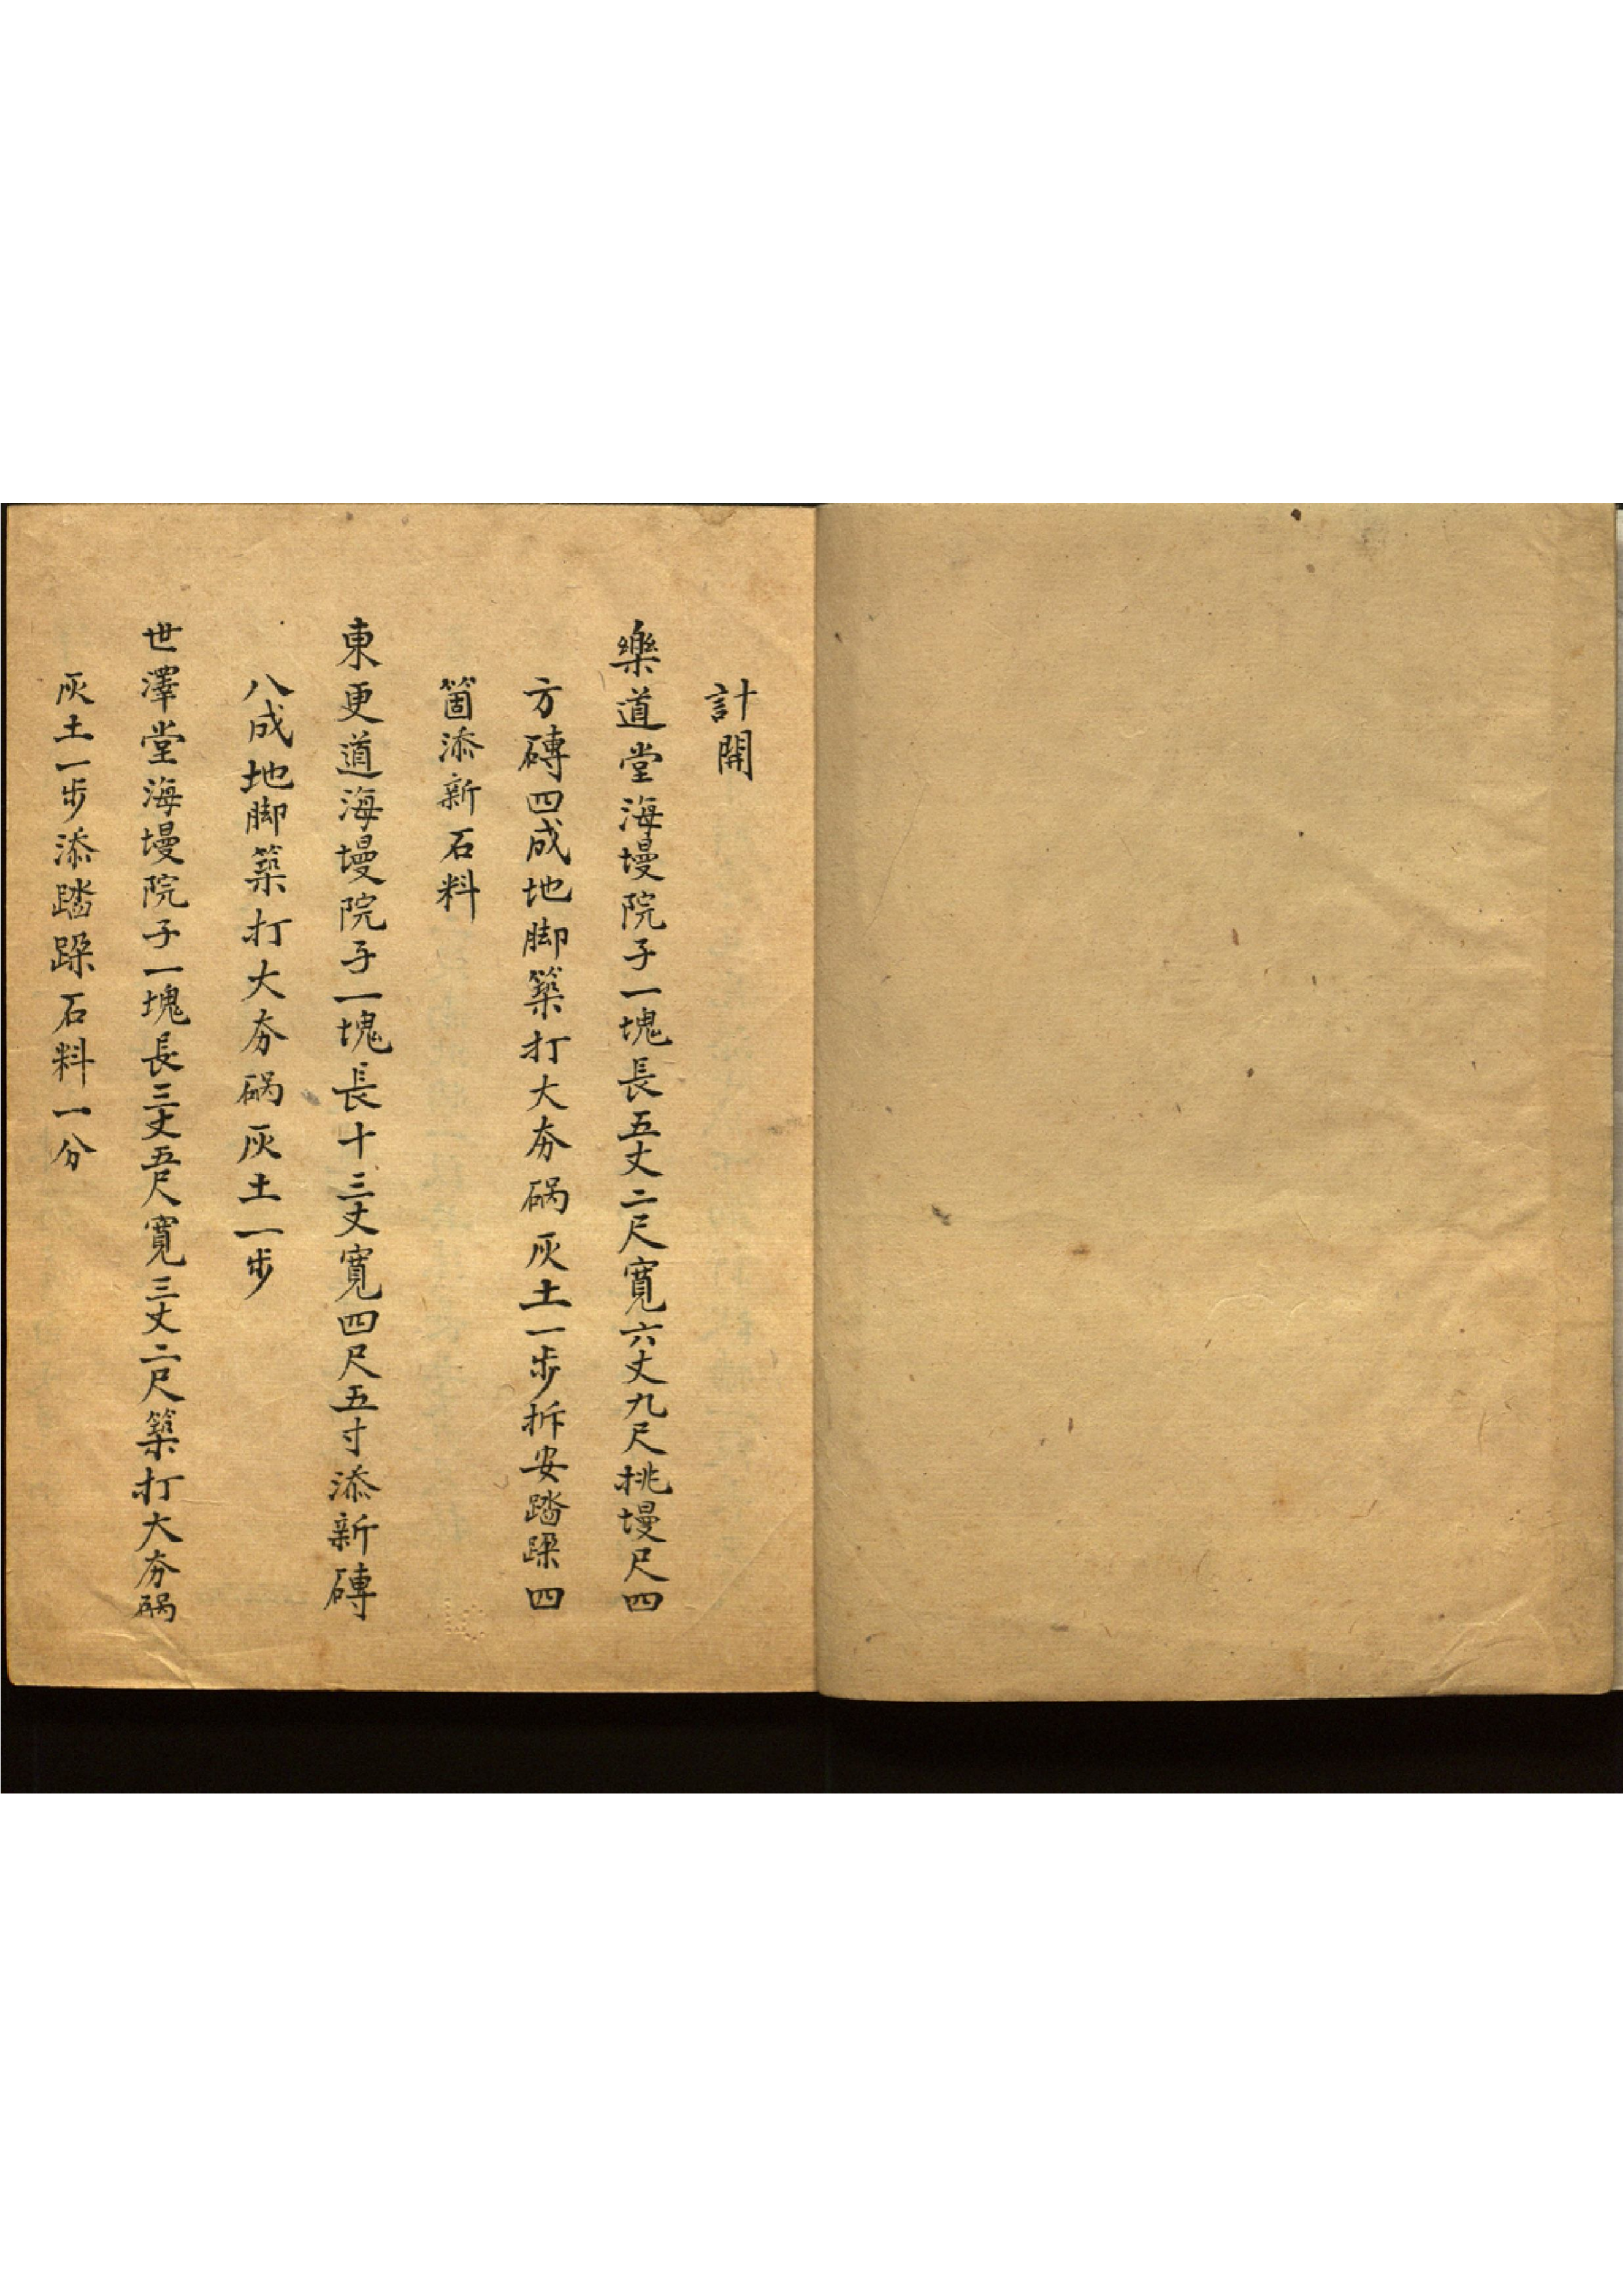 計開
樂道堂海墁院子一塊長五丈二尺寬六丈九尺挑墁尺四
方磚四成地脚築打大夯硪灰土一步拆安踏跺四
箇添新石料
東更道海墁院子一塊長十三丈寬四尺五寸添新磚
八成地脚築打大夯硪灰土一步
世澤堂海墁院子一塊長三丈五尺寬三丈二尺築打大夯硪
灰土一步添踏跺石料一分